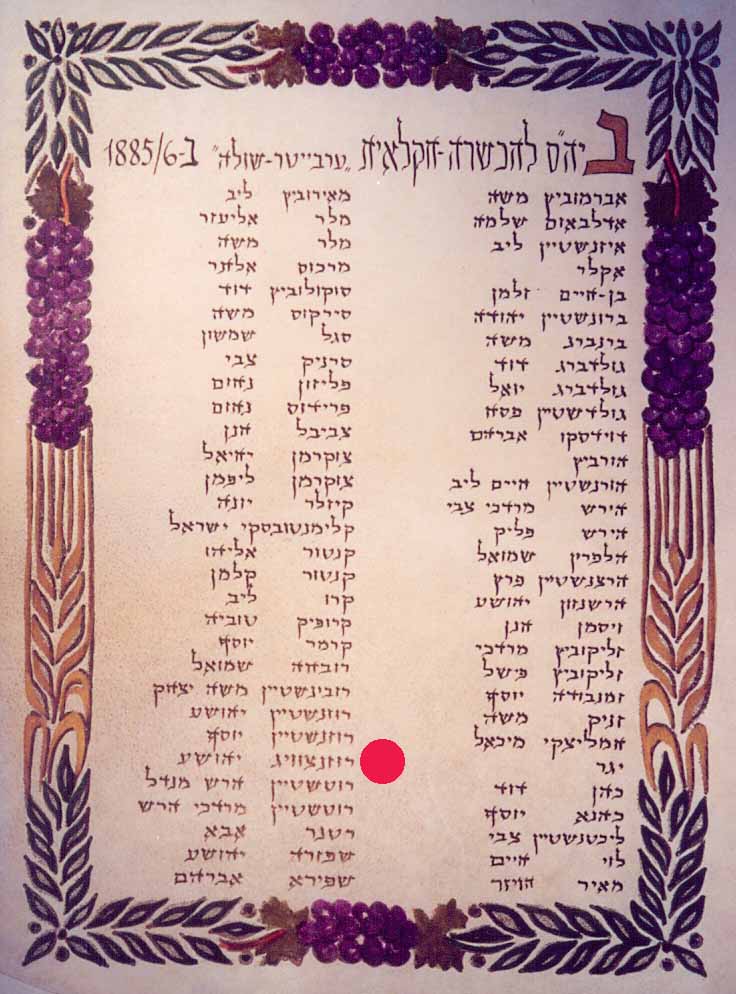 ביה"ס להכשרה-חקלאית "ערבייטר-שולה" ב-1885/6
אברמוביץ משה
אדלבאום שלמה
איזנשטיין ליב
אקלר
בן-חיים זלמן
ברונשטיין יהודה
ברנברג משה
גולדברג דוד
גולדברג יואל
גולדשטיין פסח
דוידסקו אברהם
הורביץ
הורנשטיין חיים ליב
הירש מרדכי צבי
הירש פליק
הלפרין שמואל
הרצנשטיין פרץ
הרשנזון יהושע
ויסמן חנן
זליקוביץ מרדכי
זליקוביץ פישל
זמנבודה יוסף
זניק משה
חמליצקי מיכאל
יגר
כהן דוד
כהנא יוסף
ליכטנשטיין צבי
לוי חיים
מאיר הויזר
מאירוביץ ליב
מלר אליעזר
מלר משה
מרכוס אלתר
סוקולוביץ דוד
סירקוס משה
סגל שמשון
סרניק צבי
פליזון נחום
פרידוס נחום
צביבל חנן
צוקרמן יחיאל
צוקרמן ליפמן
קיזלר יונה
קלימנטובסקי ישראל
קנטור אליהו
קנטור קלמן
קרו ליב
קרופיק טוביה
קרמר יוסף
רובחה שמואל
רובינשטיין משה יצחק
רוזנשטיין יהושע
רוזנשטיין יוסף
רוזנצוויג יהושע
רוטשטיין הרש מנדל
רוטשטיין מרדכי הרש
רטנר אבא
שפורה יהושע
שפירא אברהם